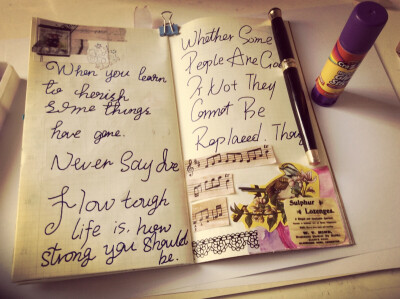 When you learn
to cherish
some things
have gone.
Never Say Die
How tough
life is, how
strong you should
be.
Whether Some
People Are Go
Or Not They
Cannot Be
Replaced. Thou
Sulphur
Lozenges.